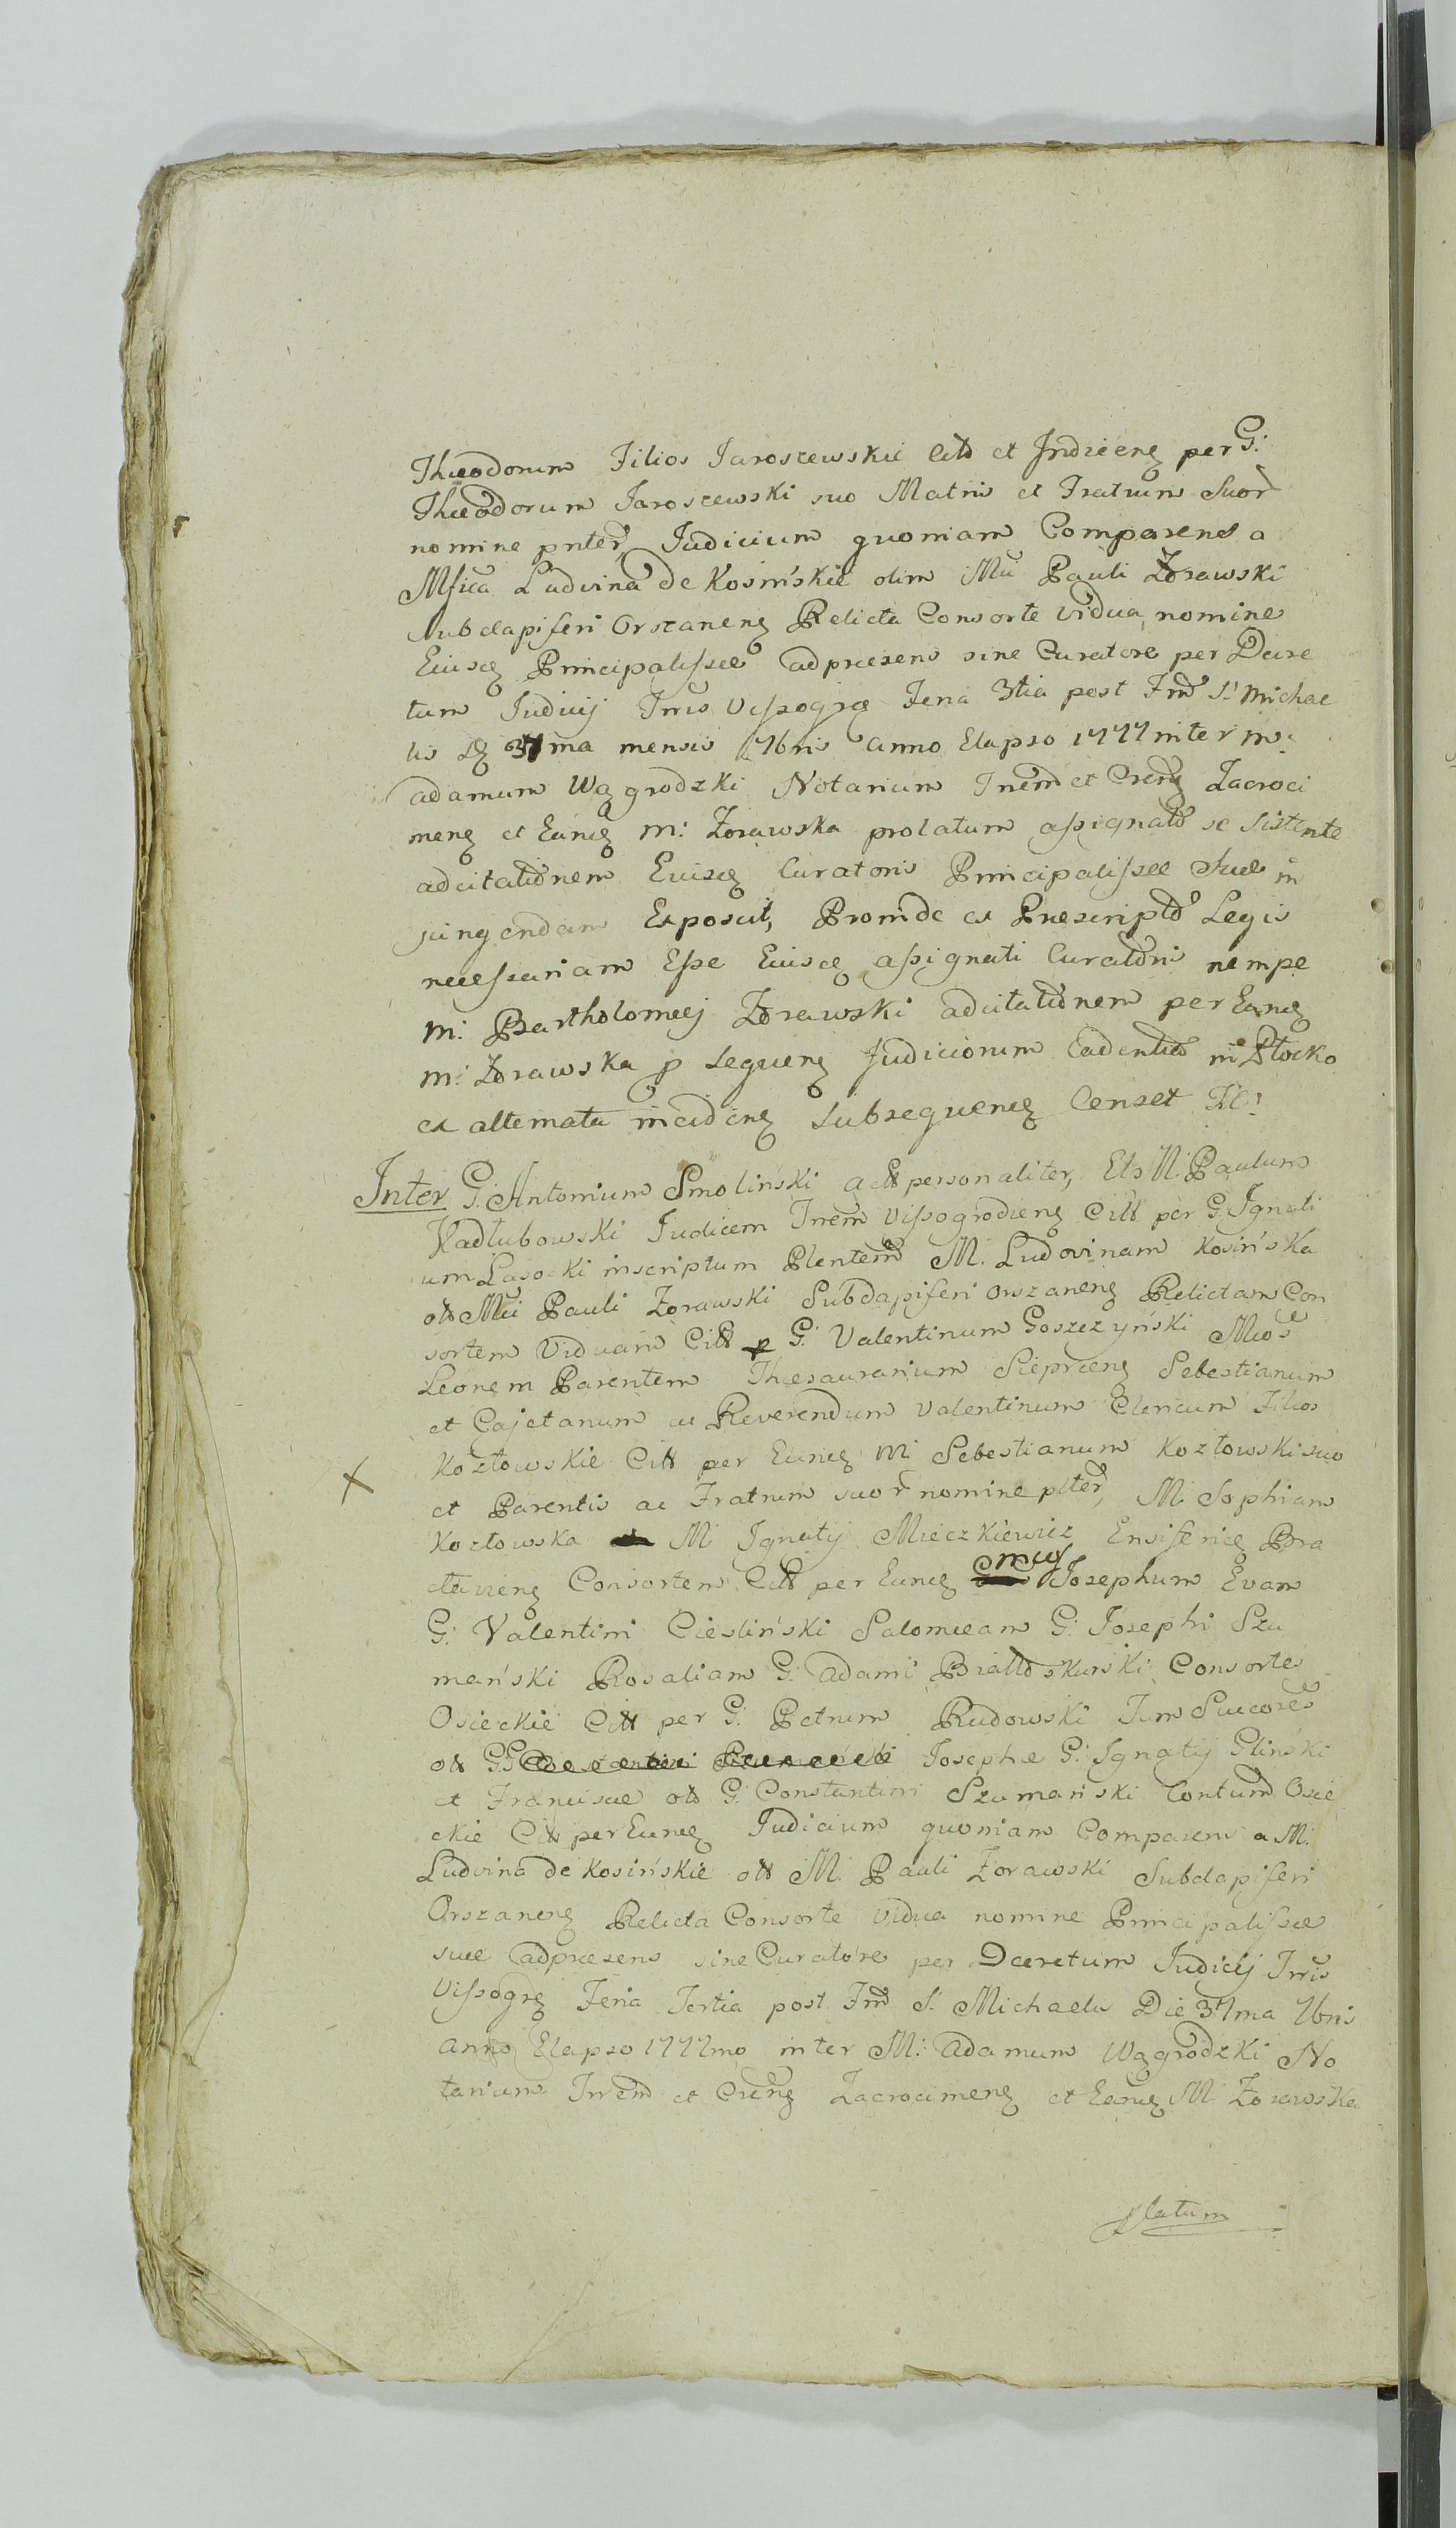 Theodorum Filios Jaroszewskie Citō et Indicenꝫ per G:
Theodorum Jaroszewski suo Matris et Fratrum Suor̃
nomine pnter̃, Judicium quoniam Comparens a
Mſica Ludvina de Kosińskie olim Mũ Pauli Zorawski
Subdapiferi Orszanenꝫ Relicta Consorte vidua, nomine
Eiusdꝫ Principalissae adpraesens sine Curatore per Decre
tum Judicij Trris Vissogrꝫ Feria 3tia post Fm̃ S: Michae
lis 37ma mensis 7bris anno Elapso 1777 inter M:
adamum Wągrodzki Notarium Trrem̃ et Crenꝫ Zacroci
menꝫ et Eandꝫ M: Zorawska prolatum assignatō se sistente
adcitationem Eiusdꝫ Curatoris Principalissae Suae in
jungendam Exposcit, Proinde ex Praescripto Legis
necessariam Esse Eiusdꝫ assignati Curatoris nempe
M: Bartholomeij Zorawski adcitationem per Eandꝫ
M: Zorawska p seqvenꝫ Judiciorum Cadentia in Płocko
ex alternata incidenꝫ subsequendꝫ Censet
Inter G: Antonium Smoliński act personaliter, Et N: Paulum
Kadłubowski Judicem Trrem̃ Vissogrodienꝫ Citt per G: Ignati
um Lasocki inscriptum Plentem̃ M. Ludovinam Kosińska
ott Mũi Pauli Zorawski Subdapiferi Orszanenꝫ Relictam Con
sortem Viduam Citt p G: Valentinum Goszczyński Mcos̃
Leonem Parentem Thesaurarium Sieprcenꝫ Sebestianum
et Cajetanum ac Reverendum Valentinum Clericum Filios
Kozłowskie Citt per Eundꝫ M: Sebestianum Kozłowski suo
et Parentis ac Fratrum suor̃ nomine plter̃, M: Sophiam
Kozłowska M Ignatij Mieczkiewicz Ensiferidꝫ Bra
clavienꝫ Consortem Citt per Eundꝫ Josephum Evam
G: Valentini Ciesliński Salomeam G: Josephi Szu
mański Rosaliam G: Adami Białłoskurski Consortes
Osieckie Citt per G: Petrum Rudowski Tum Succores̃
ott GG: Josephae G: Ignatij Gliński
et Franciscae ott G: Constantini Szumański Contum̃ Osie
ckie Citt per Eundꝫ Judicium quoniam Comparens a M:
Ludvina de Kosińskie ott M. Pauli Zorawski Subdapiferi
Orszanenꝫ Relicta Consorte Vidua nomine Principalissae
suae adpraesens sine Curatore per Decretum Judicij Trris
Vissogrꝫ Feria Tertia post Fm̃ S: Michaelis Die 37ma 7bris
anno Elapso 1777mo inter M: Adamum Wągrodzki No
tarium Trrem̃ et Crenꝫ Zacrocimenꝫ et Eandꝫ M Zorawska
platum